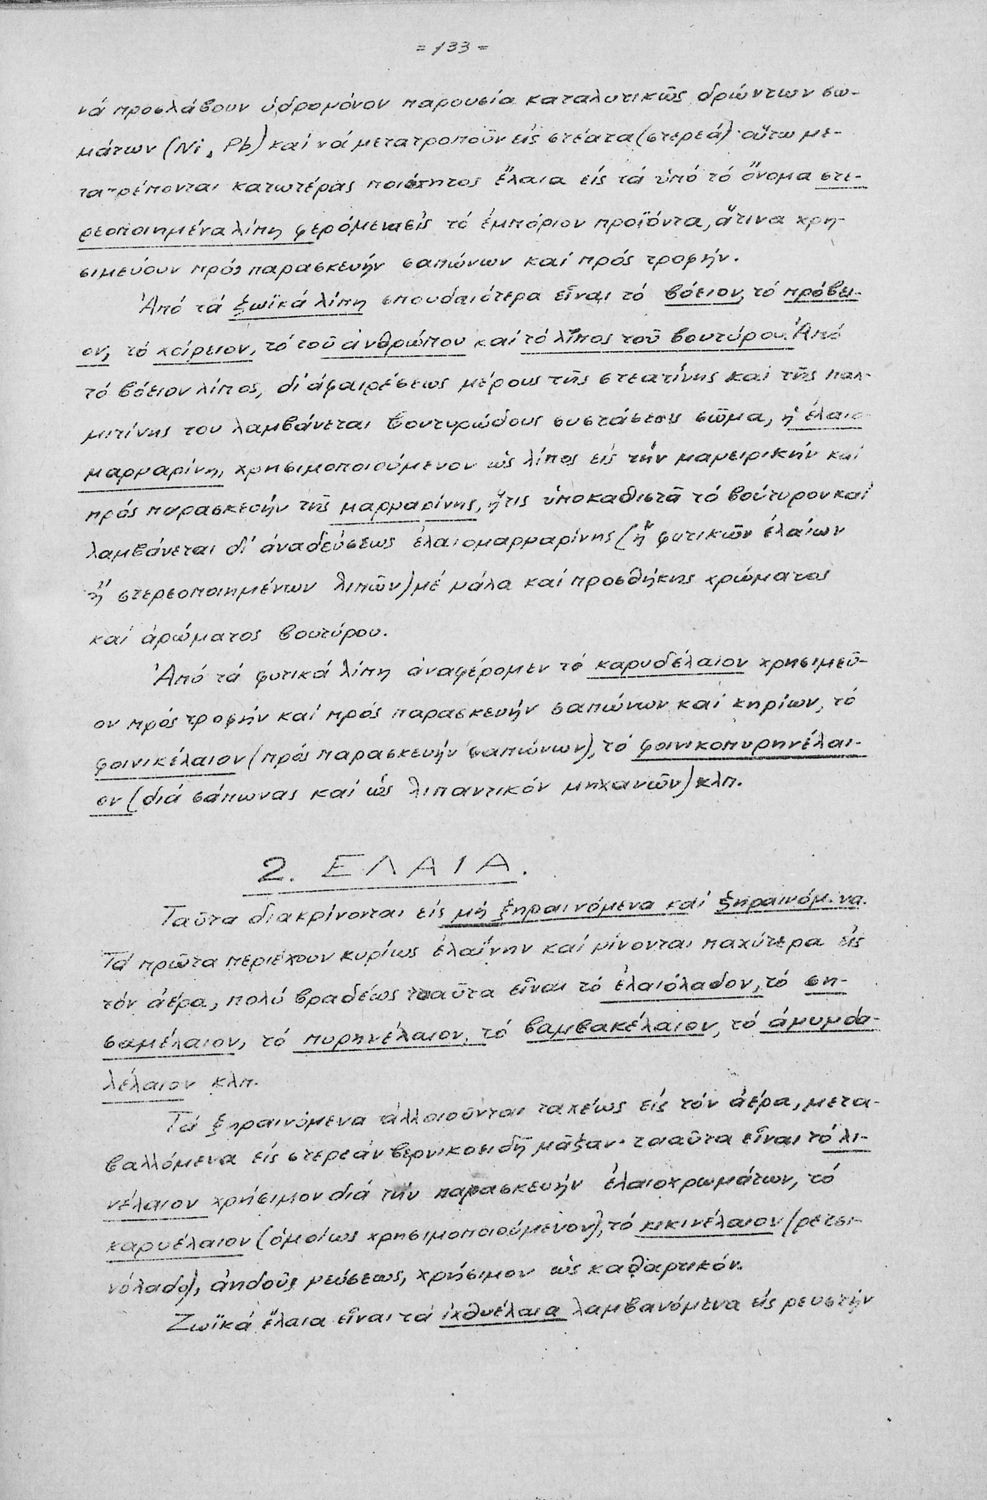 = 133 =
νά προσλάβουν ὑδρογόνον παρουσία καταλυτικῶς δρώντων σω-
μάτων (Ni, Pb) καί νά μετατροποῦν εἰς στέατα (στερεά)· οὕτω με-
τατρέπονται κατωτέρας ποιότητος ἔλαια εἰς τά ὑπό τό ὄνομα στε-
ρεοποιημένα λίπη φερόμενα εἰς τό ἐμπόριον προϊόντα, ἅτινα χρη-
σιμεύουν πρός παρασκευήν σαπώνων καί πρός τροφήν.
Ἀπό τά ζωϊκά λίπη σπουδαιότερα εἶναι τό βόειον, τό πρόβει-
ον, τό χοίρειον, τό τοῦ ἀνθρώπου καί τό λίπος τοῦ βουτύρου. Ἀπό
τό βόειον λίπος, δι' ἀφαιρέσεως μέρους τῆς στεατίνης καί τῆς παλ-
μιτίνης του λαμβάνεται βουτυρώδους συστάσεως σῶμα, ἡ ἐλαιο-
μαργαρίνη, χρησιμοποιούμενον ὡς λίπος εἰς τήν μαγειρικήν καί
πρός παρασκευήν τῆς μαργαρίνης, ἥτις ὑποκαθιστᾶ τό βούτυρον καί
λαμβάνεται δι' ἀναδεύσεως ἐλαιομαργαρίνης (ἤ φυτικῶν ἐλαίων
ἤ στερεοποιημένων λιπῶν) μέ γάλα καί προσθήκης χρώματος
καί ἀρώματος βουτύρου.
Ἀπό τά φυτικά λίπη ἀναφέρομεν τό καρυδέλαιον χρησιμεῦ-
ον πρός τροφήν καί πρός παρασκευήν σαπώνων καί κηρίων, τό
φοινικέλαιον (πρός παρασκευήν σαπώνων), τό φοινικοπυρηνέλαι-
ον (διά σάπωνας καί ὡς λιπαντικόν μηχανῶν) κλπ.
2. ΕΛΑΙΑ.
Ταῦτα διακρίνονται εἰς μή ξηραινόμενα καί ξηραινόμ.να.
Τά πρῶτα περιέχουν κυρίως ἐλαΐνην καί γίνονται παχύτερα εἰς
τόν ἀέρα, πολύ βραδέως τοαῦτα εἶναι τό ἐλαιόλαδον, τό ση-
σαμέλαιον, τό πυρηνέλαιον, τό βαμβακέλαιον, τό ἀμυγδα-
λέλαιον κλπ.
Τά ξηραινόμενα ἀλλοιοῦνται ταχέως εἰς τόν ἀέρα, μετα-
βαλλόμενα εἰς στερεάν βερνικοειδῆ μᾶζαν· τοαῦτα εἶναι τό λι-
νέλαιον χρήσιμον διά τήν παρασκευήν ἐλαιοχρωμάτων, τό
καρυέλαιον (ὁμοίως χρησιμοποιούμενον), τό κικινέλαιον (ρετσι-
νόλαδο), ἀηδοῦς γεύσεως, χρήσιμον ὡς καθαρτικόν.
Ζωϊκά ἔλαια εἶναι τά ἰχθυέλαια λαμβανόμενα εἰς ρευστήν